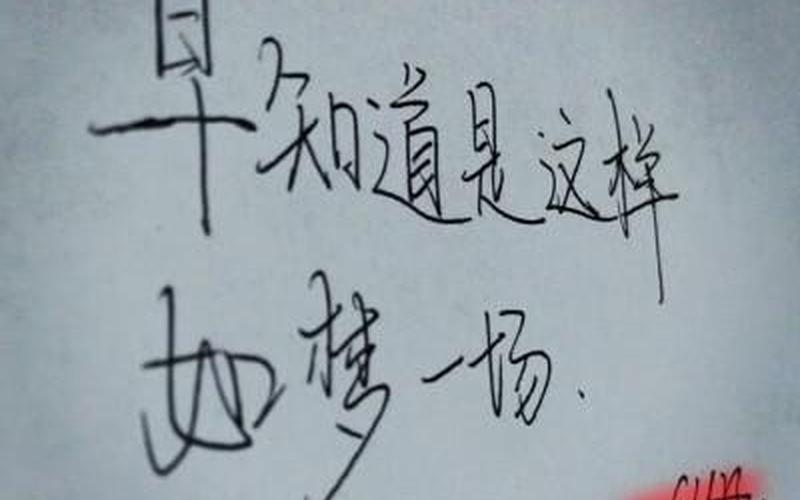 早知道是这样
如梦一场.